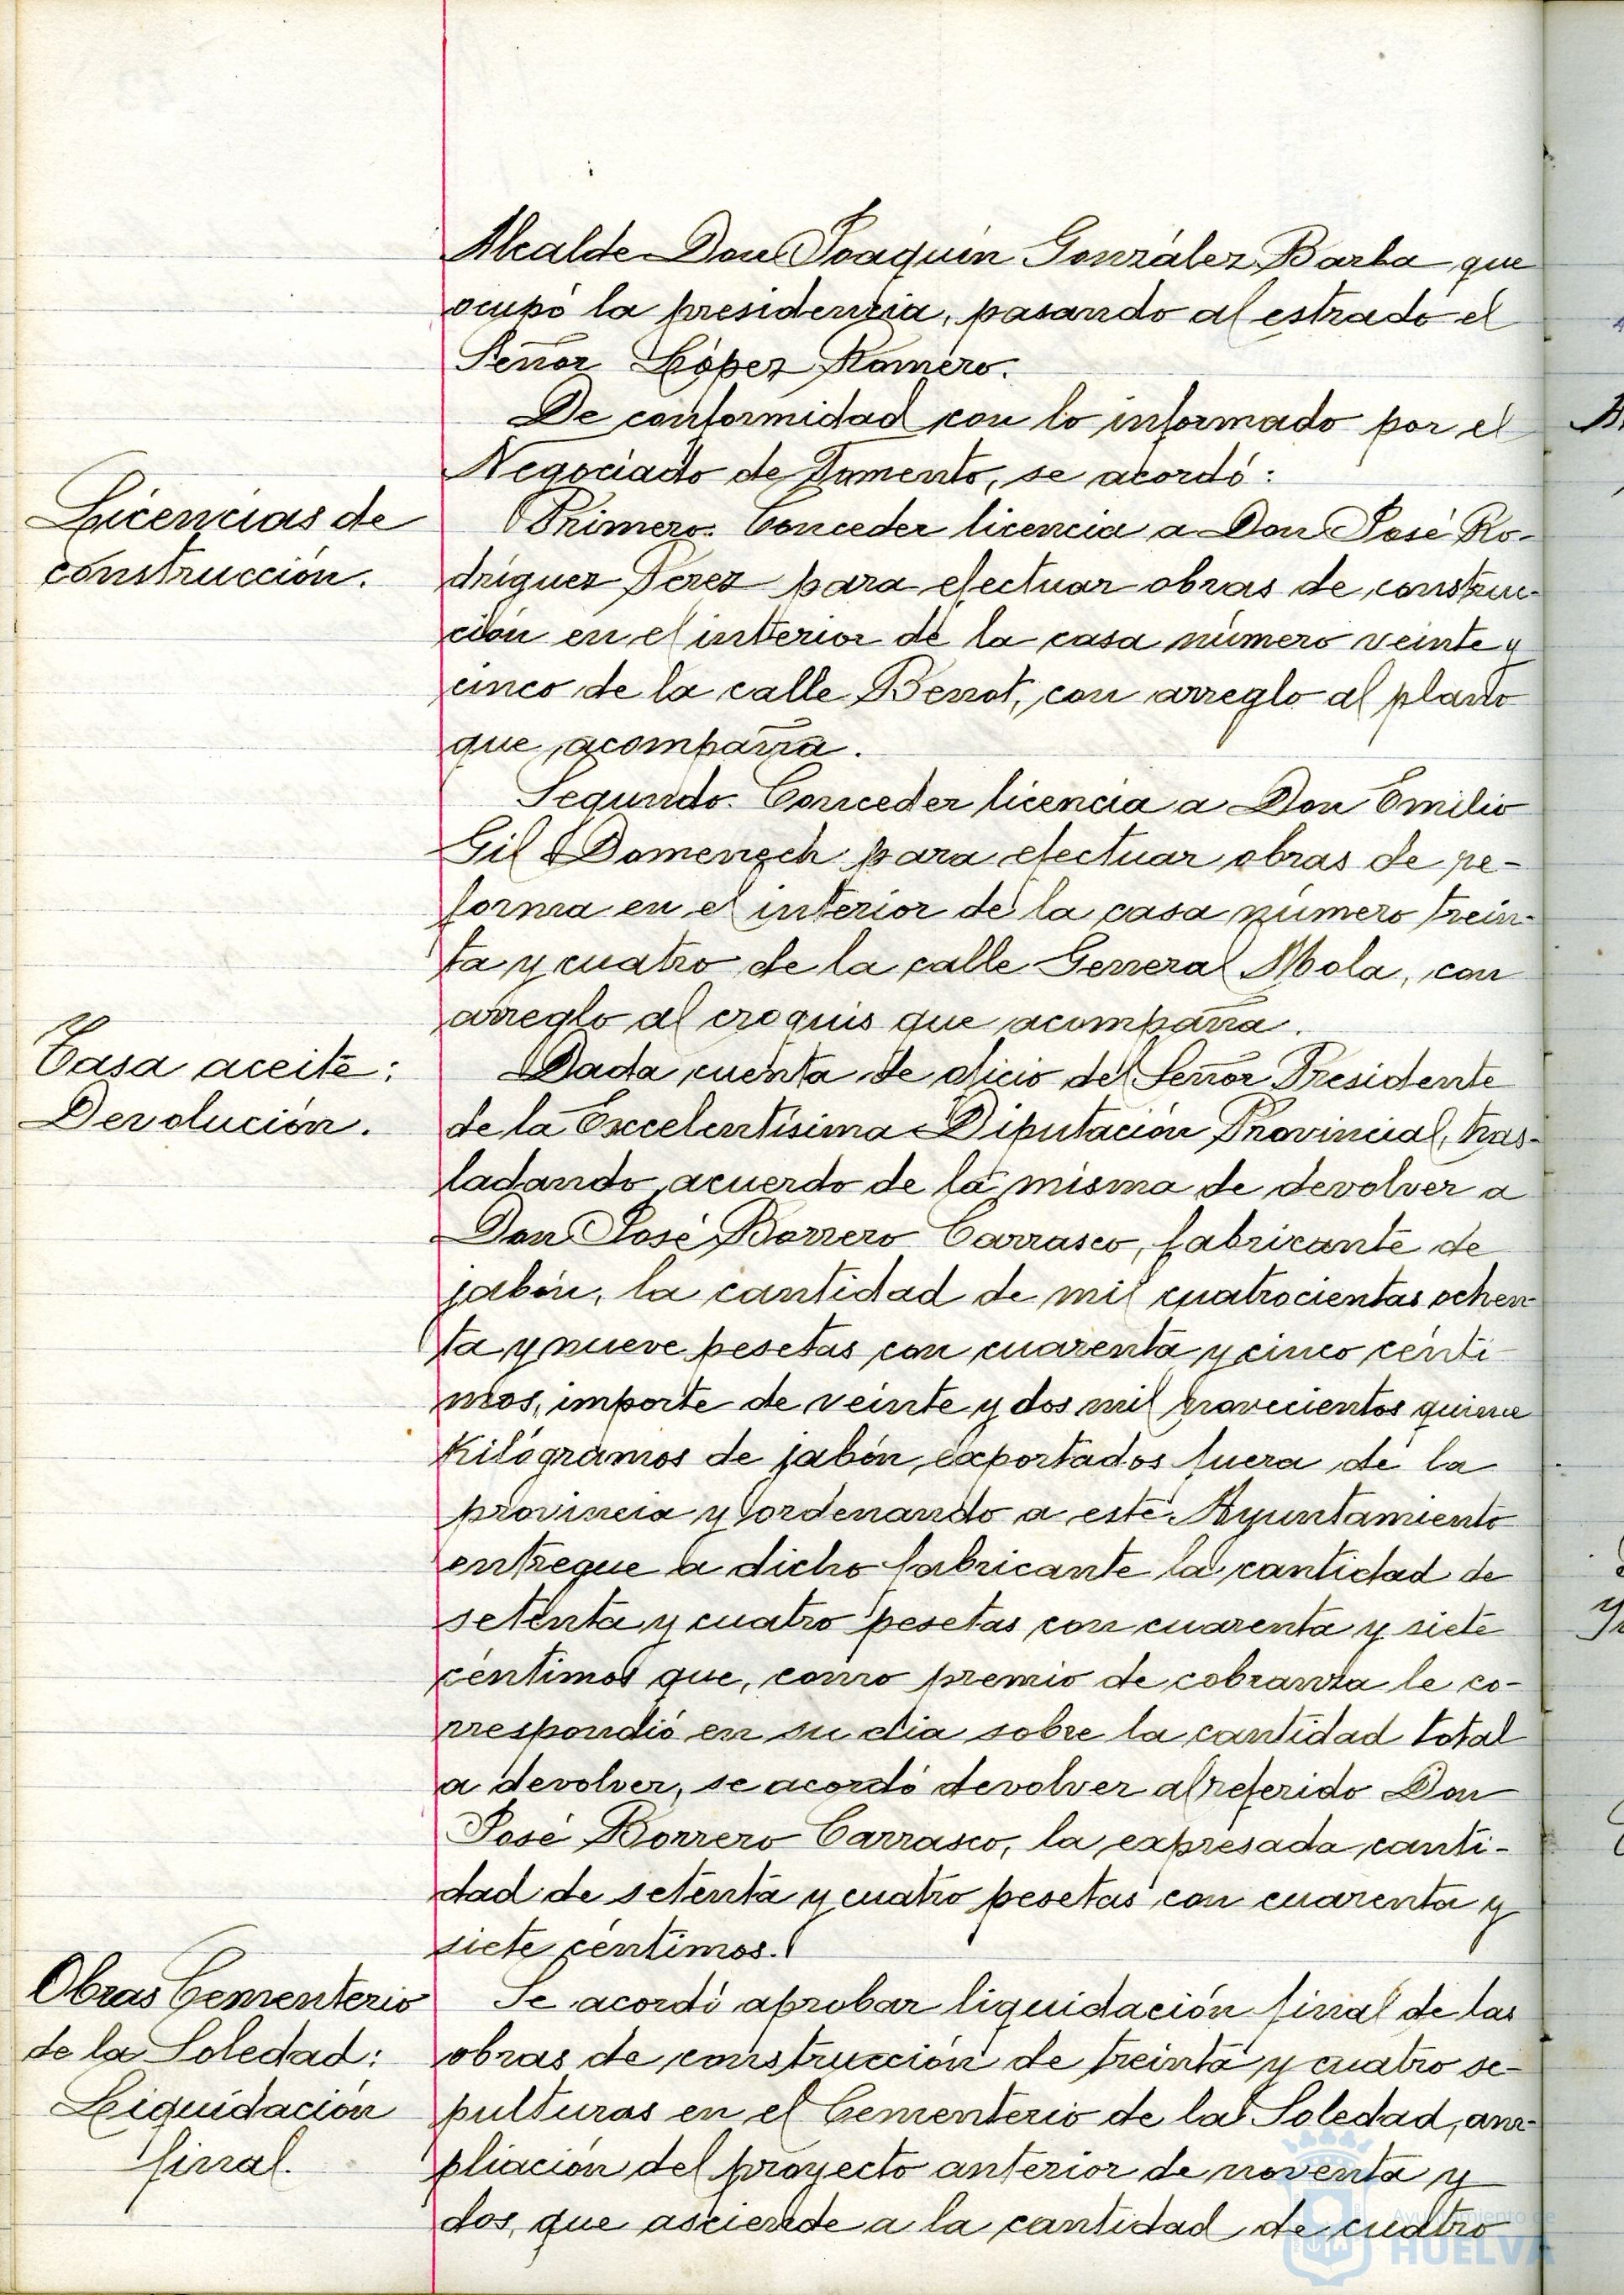 Alcalde Don Joaquín González Barba que
ocupó la presidencia, pasando al estrado el
Señor López Romero.
De conformidad con lo informado por el
Negociado de Fomento, se acordó:
Licencias de
construcción.
Primero. Conceder licencia a Don José Ro-
dríguez Pérez para efectuar obras de construc-
ción en el interior de la casa número veinte y
cinco de la calle Benot, con arreglo al plano
que acompaña.
Segundo. Conceder licencia a Don Emilio
Gil Domenech para efectuar obras de re-
forma en el interior de la casa número trein-
ta y cuatro de la calle General Mola, con
arreglo al croquis que acompaña.
Tasa aceite:
Devolución.
Dada cuenta de oficio del Señor Presidente
de la Excelentísima Diputación Provincial, tras-
ladando acuerdo de la misma de devolver a
Don José Borrero Carrasco, fabricante de
jabón, la cantidad de mil cuatrocientas ochen-
ta y nueve pesetas con cuarenta y cinco cénti-
mos, importe de veinte y dos mil novecientos quince
Kilógramos de jabón exportados fuera de la
provincia y ordenando a este Ayuntamiento
entregue a dicho fabricante la cantidad de
setenta y cuatro pesetas con cuarenta y siete
céntimos que, como premio de cobranza le co-
rrespondió en su día sobre la cantidad total
a devolver, se acordó devolver al referido Don
José Borrero Carrasco, la expresada canti-
dad de setenta y cuatro pesetas con cuarenta y
siete céntimos.
Obras Cementerio
de la Soledad:
Liquidación
final.
Se acordó aprobar liquidación final de las
obras de construcción de treinta y cuatro se-
pulturas en el Cementerio de la Soledad, am-
pliación del proyecto anterior de noventa y
dos, que asciende a la cantidad de cuatro
Ayuntamiento de
HUELVA